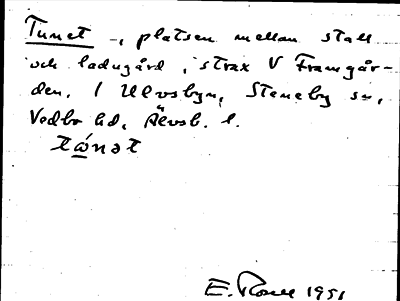 Tunet -, platsen mellan stall
och ladugård, strax V Framgår-
den, 1 Ulvsbyn, Steneby sn,
Vedbo hd, Älvsb. l.
tȯnət
E. 1951